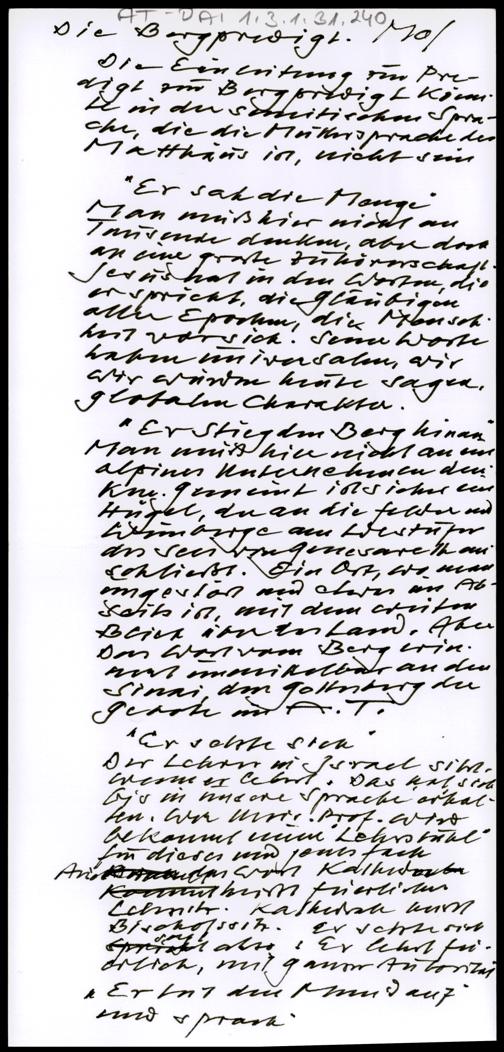 AT-DAI 1.3.1.31.240
Die Bergpredigt. Mo/
Die Einleitung zur Pre-
digt zur Bergpredigt könn-
te in der semitischen Spra-
che, die die Muttersprache des
Matthäus ist, nicht sein
"Er sah die Menge"
Man muß hier nicht an
Tausende denken, aber doch
an eine große Zuhörerschaft.
Jesus hat in den Worten, die
er spricht, die Gläubigen
aller Epochen, die Mensch-
heit vor sich. Seine Worte
haben universalen, wir
wir würden heute sagen,
globalen Charakter.
"Er stieg den Berg hinan"
Man muß hier nicht an ein
alpines Unternehmen den-
ken. Gemeint ist sicher ein
Hügel, der an die Felder und
Weinberge am Westufer
des Sees von Genesareth an-
schließt. Ein Ort, wo man
ungestört und etwas im Ab-
seits ist, mit dem weiten
Blick über das Land. Aber
das Wort vom Berg erin-
nert unmittelbar an den
Sinai, den Gottesberg der
Gebote im A.T.
"Er setzte sich"
Der Lehrer in Israel sitzt,
wenn er lehrt. Das hat sich
bis in unsere Sprache erhal-
ten. Der Univ. Prof. wird
bekommt einen "Lehrstuhl"
für dieses und jenes Fach
Auch das Wort Katheder
heißt feierlicher
Lehrsitz. Kathedra heißt
Bischofssitz. Er setzte sich
also: Er lehrt fei-
erlich, mit ganzer Autorität
"Er tut den Mund auf"
und sprach